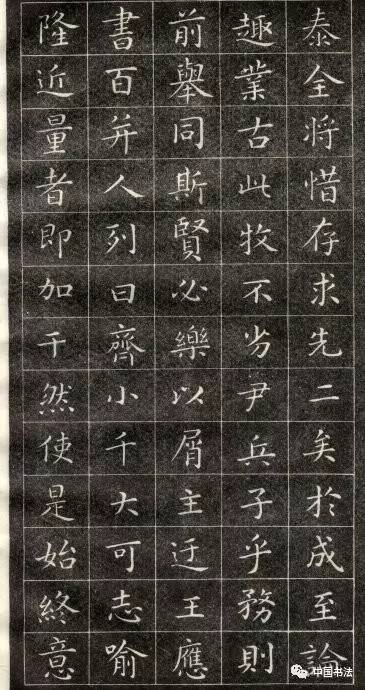 泰全將惜存求先二矣於成至論
趣業古此牧不劣尹兵子乎務則
前舉同斯賢必樂以屑主迂王應
書百并人列曰齊小千大可志喻
隆近量者即加干然使是始終意
中国书法